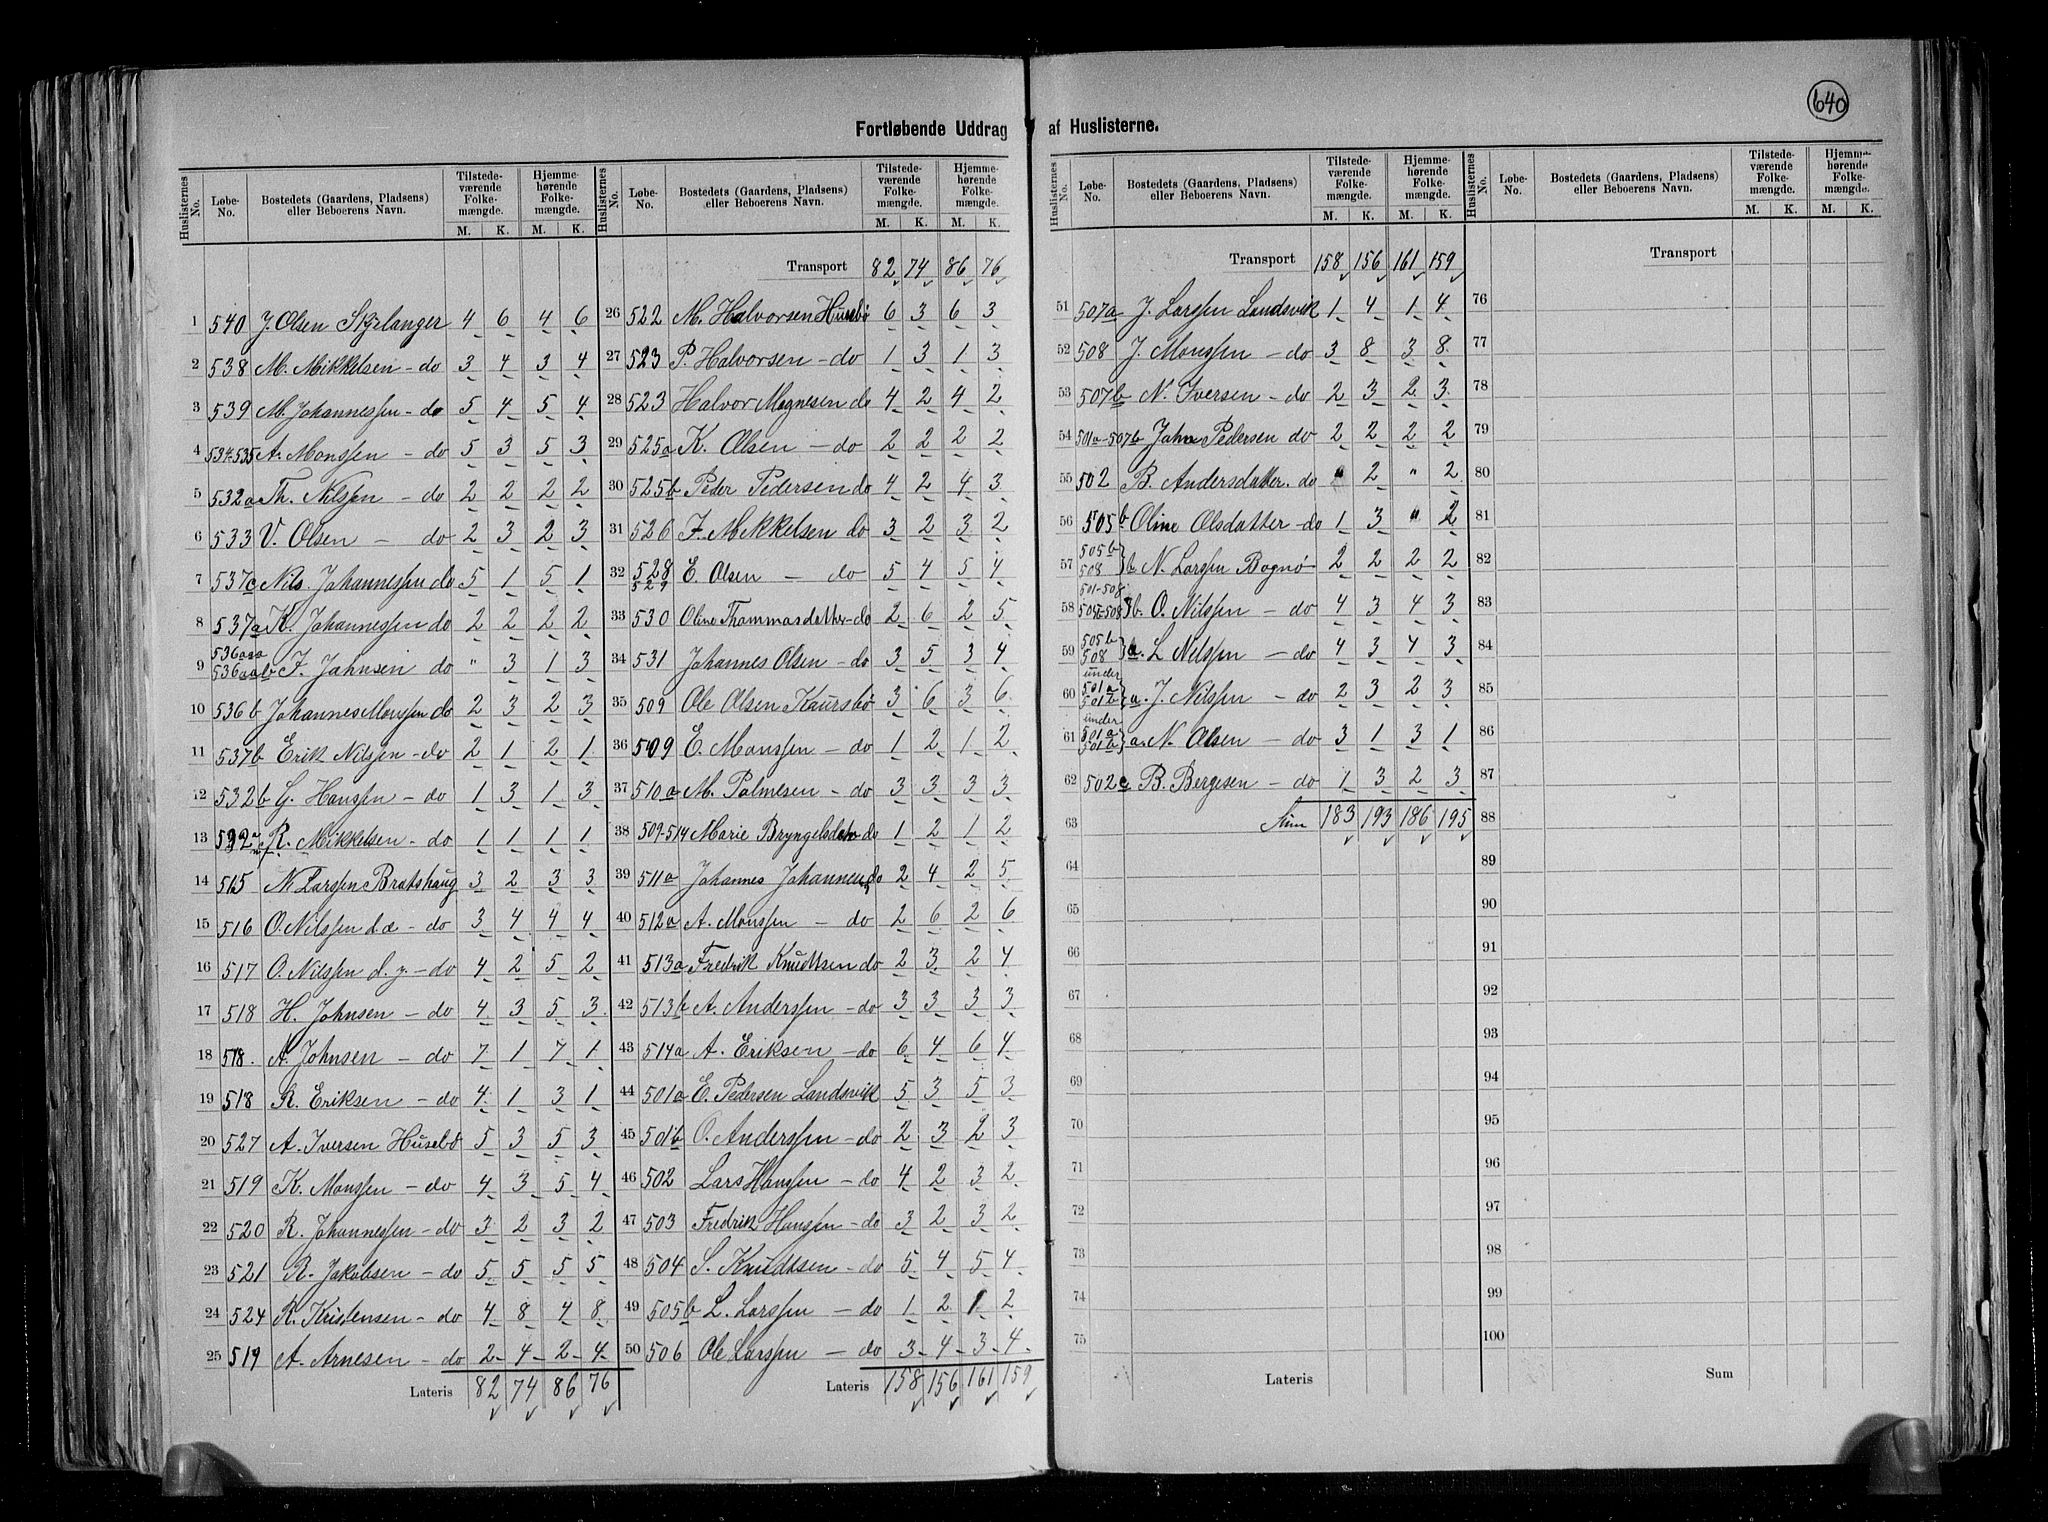 640
Fortløbende Uddrag af Huslisterne.
Huslisternes No. Løbe-No. Bostedets (Gaardens, Pladsens) eller Beboerens Navn. Tilstedeværende Folkemængde. M. K. Hjemmehørende Folkemængde. M. K.
1 540 J. Olsen Skjelanger 4 6 4 6
2 538 M. Mikkelsen - do 3 4 3 4
3 539 M. Johannessen - do 5 4 5 4
4 534-535 A. Monssen - do 5 3 5 3
5 532a Th. Nilssen - do 2 2 2 2
6 533 V. Olsen - do 2 3 2 3
7 537c Nils Johannessen do 5 1 5 1
8 537a K. Johannessen do 2 2 2 2
9 536aaa 536aab F. Johnsen do " 3 1 3
10 536b Johannes Monssen do 2 3 2 3
11 537b Erik Nilssen - do 2 1 2 1
12 532b G. Hanssen - do 1 3 1 3
13 R. Mikkelsen - do 1 1 1 1
14 515 N. Larssen Bratshaug 3 2 3 3
15 516 O. Nilssen d. æ - do 3 4 4 4
16 517 O. Nilssen d. y. - do 4 2 5 2
17 518 H. Johnsen - do 4 3 5 3
18 518. A. Johnsen - do 7 1 7 1
19 518 R. Eriksen - do 4 1 3 1
20 527 A. Iversen Husebø 5 3 5 3
21 519 K. Monssen - do 4 3 5 4
22 520 R. Johannessen - do 3 2 3 2
23 521 R. Jakobsen - do 5 5 5 5
24 524 R. Kristensen - do 4 8 4 8
25 519 A. Arnesen - do 2 4 2 4
Lateris 82 74 86 76
Huslisternes No. Løbe-No. Bostedets (Gaardens, Pladsens) eller Beboerens Navn. Tilstedeværende Folkemængde. M. K. Hjemmehørende Folkemængde. M. K.
Transport 82 74 86 76
26 522 M. Halvorsen Husebø 6 3 6 3
27 523 P. Halvorsen - do 1 3 1 3
28 523 Halvor Magnesen do 4 2 4 2
29 525a K. Olsen - do 2 2 2 2
30 525b Peder Pedersen do 4 2 4 3
31 526 F. Mikkelsen do 3 2 3 2
32 528 529 E. Olsen - do 5 4 5 4
33 530 Oline Thommasdatter - do 2 6 2 5
34 531 Johannes Olsen - do 3 5 3 4
35 509 Ole Olsen Kaursbø 3 6 3 6
36 509 E. Monssen - do 1 2 1 2
37 510a M. Palmesen - do 3 3 3 3
38 509-514 Marie Bryngelsdatr do 1 2 1 2
39 511a Johannes Johannesen do 2 4 2 5
40 512a A. Monssen - do 2 6 2 6
41 513a Fredrik Knudtsen do 2 3 2 4
42 513b A. Anderssen - do 3 3 3 3
43 514a A. Eriksen - do 6 4 6 4
44 501a E. Pedersen Landsvik 5 3 5 3
45 501b O. Anderssen - do 2 3 2 3
46 502 Lars Hanssen - do 4 2 3 2
47 503 Fredrik Hanssen - do 3 2 3 2
48 504 S. Knudtsen - do 5 4 5 4
49 505b L. Larssen - do 1 2 1 2
50 506 Ole Larssen - do 3 4 3 4
Lateris 158 156 161 159
Huslisternes No. Løbe-No. Bostedets (Gaardens, Pladsens) eller Beboerens Navn. Tilstedeværende Folkemængde. M. K. Hjemmehørende Folkemængde. M. K.
Transport 158 156 161 159
51 507a J. Larssen Landsvik 1 4 1 4
52 508 J. Monssen - do 3 8 3 8
53 507b N. Iversen - do 2 3 2 3
54 501a-507b John Pedersen do 2 2 2 2
55 502 B. Andersdatter. do " 2 " 2
56 505b Oline Olsdatter - do 1 3 " 2
57 505b 508 } b N. Larssen Bognø 2 2 2 2
58 501-508 b. O. Nilssen - do 4 3 4 3
59 505b 508 } a. L. Nilssen - do 4 3 4 3
60 under 501a 501b } a. J. Nilssen - do 2 3 2 3
61 under 501a 501b } a. N. Olsen - do 3 1 3 1
62 502c B. Bergesen - do 1 3 2 3
63 Sum 183 193 186 195
64
65
66
67
68
69
70
71
72
73
74
75
Lateris
Huslisternes No. Løbe-No. Bostedets (Gaardens, Pladsens) eller Beboerens Navn. Tilstedeværende Folkemængde. M. K. Hjemmehørende Folkemængde. M. K.
Transport
76
77
78
79
80
81
82
83
84
85
86
87
88
89
90
91
92
93
94
95
96
97
98
99
100
Sum